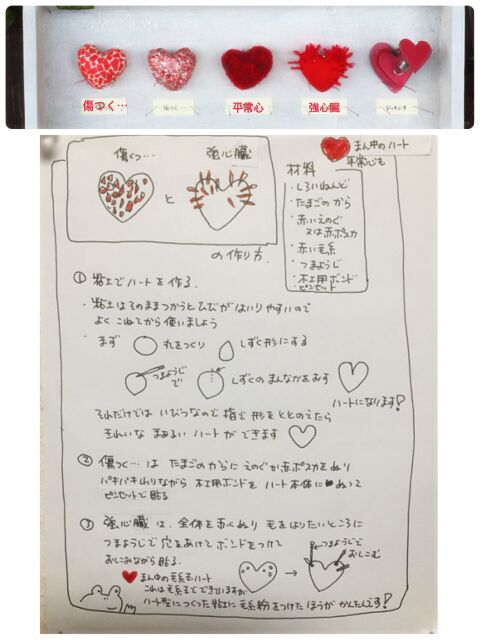 傷つく…
平常心
強心臓
まん中のハート
平常心も
傷つく…
と
強心臓
の作り方.
材料
・しろいねんど
・たまごのから
・赤いえのぐ
又は赤ポスカ
・赤い毛糸
・つまようじ
・木工用ボンド
・ピンセット
① 粘土でハートを作る.
・粘土はそのままつかうとひびがはいりやすいので
よくこねてから使いましょう
・まず 丸をつくり しずく形にする
つまようじで しずくのまんなかをおす
ハートになります!
それだけでは いびつなので 指で形をととのえたら
きれいな まぁるい ハートができます
② 傷つく… は たまごのからに えのぐか赤ポスカをぬり
パキパキわりながら 木工用ボンドを ハート本体にぬって
ピンセットで貼る
③ 強心臓 は、全体を赤くぬり 毛をはりたいところに
つまようじで穴をあけて ボンドをつけて
おしこみながら貼る.
つまようじで
おしこむ
まん中の毛糸ハート
これは毛糸までできますが
ハート型につくった粘土に毛糸粉をつけたほうが かんたんです!